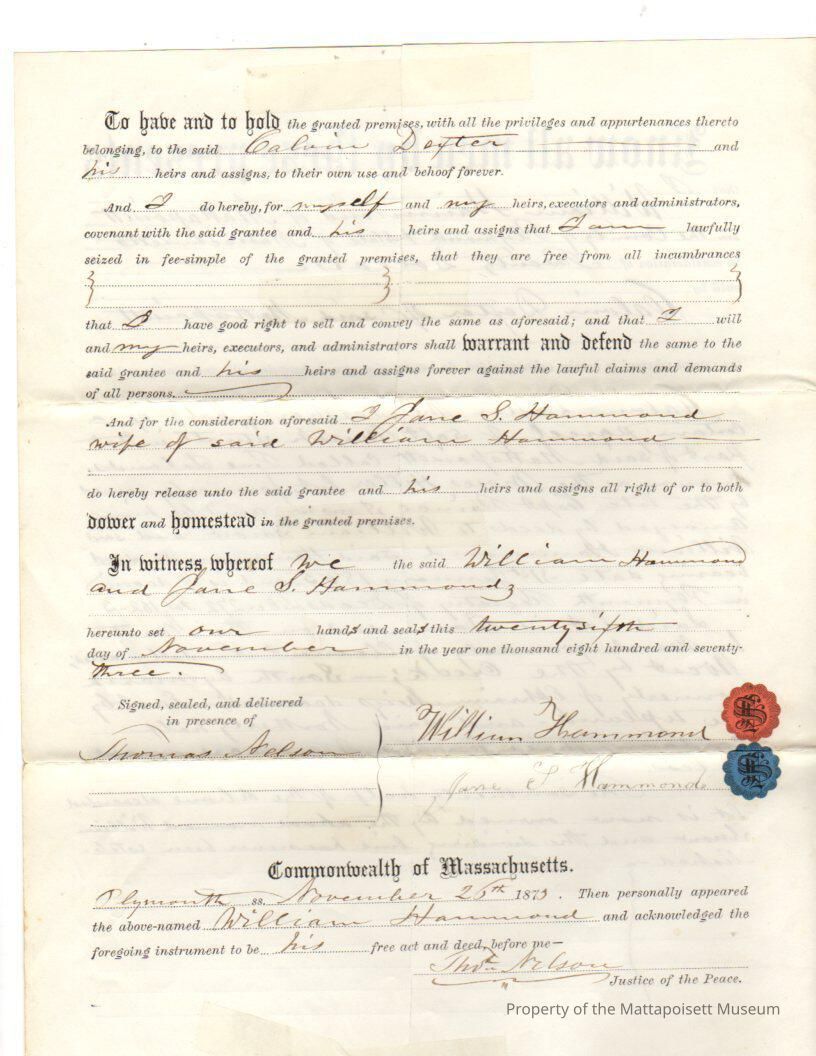 To have and to hold the granted premises, with all the privileges and appurtenances thereto
belonging, to the said Calvin Dexter and
his heirs and assigns, to their own use and behoof forever.
And I do hereby, for myself and my heirs, executors and administrators,
covenant with the said grantee and his heirs and assigns that I am lawfully
seized in fee-simple of the granted premises, that they are free from all incumbrances
that I have good right to sell and convey the same as aforesaid; and that I will
and my heirs, executors, and administrators shall warrant and defend the same to the
said grantee and his heirs and assigns forever against the lawful claims and demands
of all persons.
And for the consideration aforesaid I Jane S. Hammond
wife of said William Hammond
do hereby release unto the said grantee and his heirs and assigns all right of or to both
dower and homestead in the granted premises.
In witness whereof we the said William Hammond
and Jane S. Hammond
hereunto set our hands and seals this twenty sixth
day of November in the year one thousand eight hundred and seventy-
three.
Signed, sealed, and delivered
in presence of
Thomas Nelson
William Hammond
Jane S Hammond
Commonwealth of Massachusetts.
Plymouth ss. November 26th 1873. Then personally appeared
the above-named William Hammond and acknowledged the
foregoing instrument to be his free act and deed, before me—
Thos Nelson
Justice of the Peace.
Property of the Mattapoisett Museum